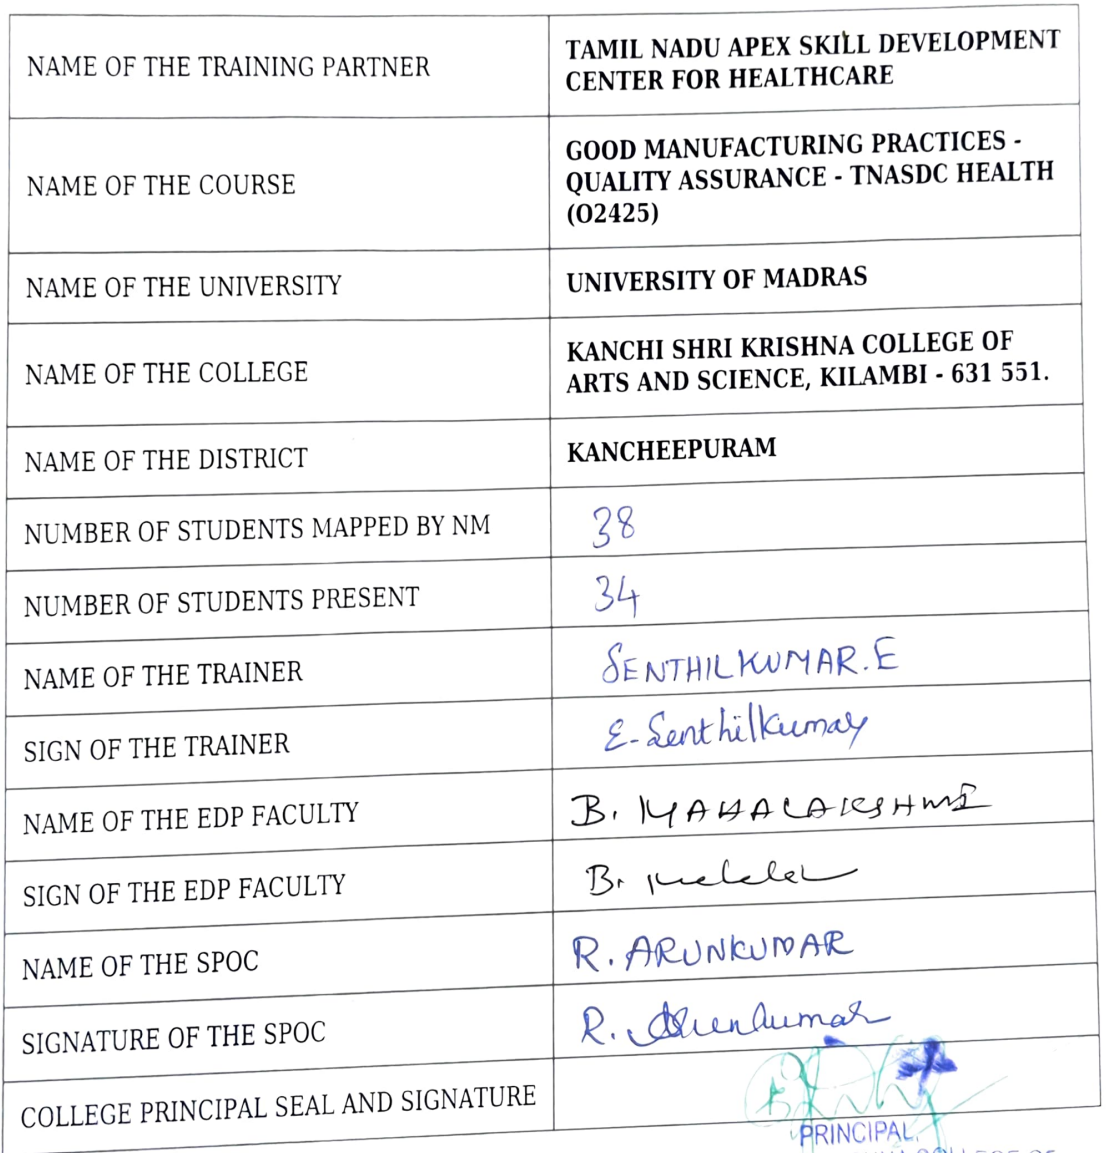 NAME OF THE TRAINING PARTNER
TAMIL NADU APEX SKILL DEVELOPMENT
CENTER FOR HEALTHCARE
NAME OF THE COURSE
GOOD MANUFACTURING PRACTICES -
QUALITY ASSURANCE - TNASDC HEALTH
(O2425)
NAME OF THE UNIVERSITY
UNIVERSITY OF MADRAS
NAME OF THE COLLEGE
KANCHI SHRI KRISHNA COLLEGE OF
ARTS AND SCIENCE, KILAMBI - 631 551.
NAME OF THE DISTRICT
KANCHEEPURAM
NUMBER OF STUDENTS MAPPED BY NM
38
NUMBER OF STUDENTS PRESENT
34
NAME OF THE TRAINER
SENTHILKUMAR.E
SIGN OF THE TRAINER
E-Senthilkumar
NAME OF THE EDP FACULTY
B. MAHALAKSHMI
SIGN OF THE EDP FACULTY
B.
NAME OF THE SPOC
R. ARUNKUMAR
SIGNATURE OF THE SPOC
R. Arunkumar
COLLEGE PRINCIPAL SEAL AND SIGNATURE
PRINCIPAL,